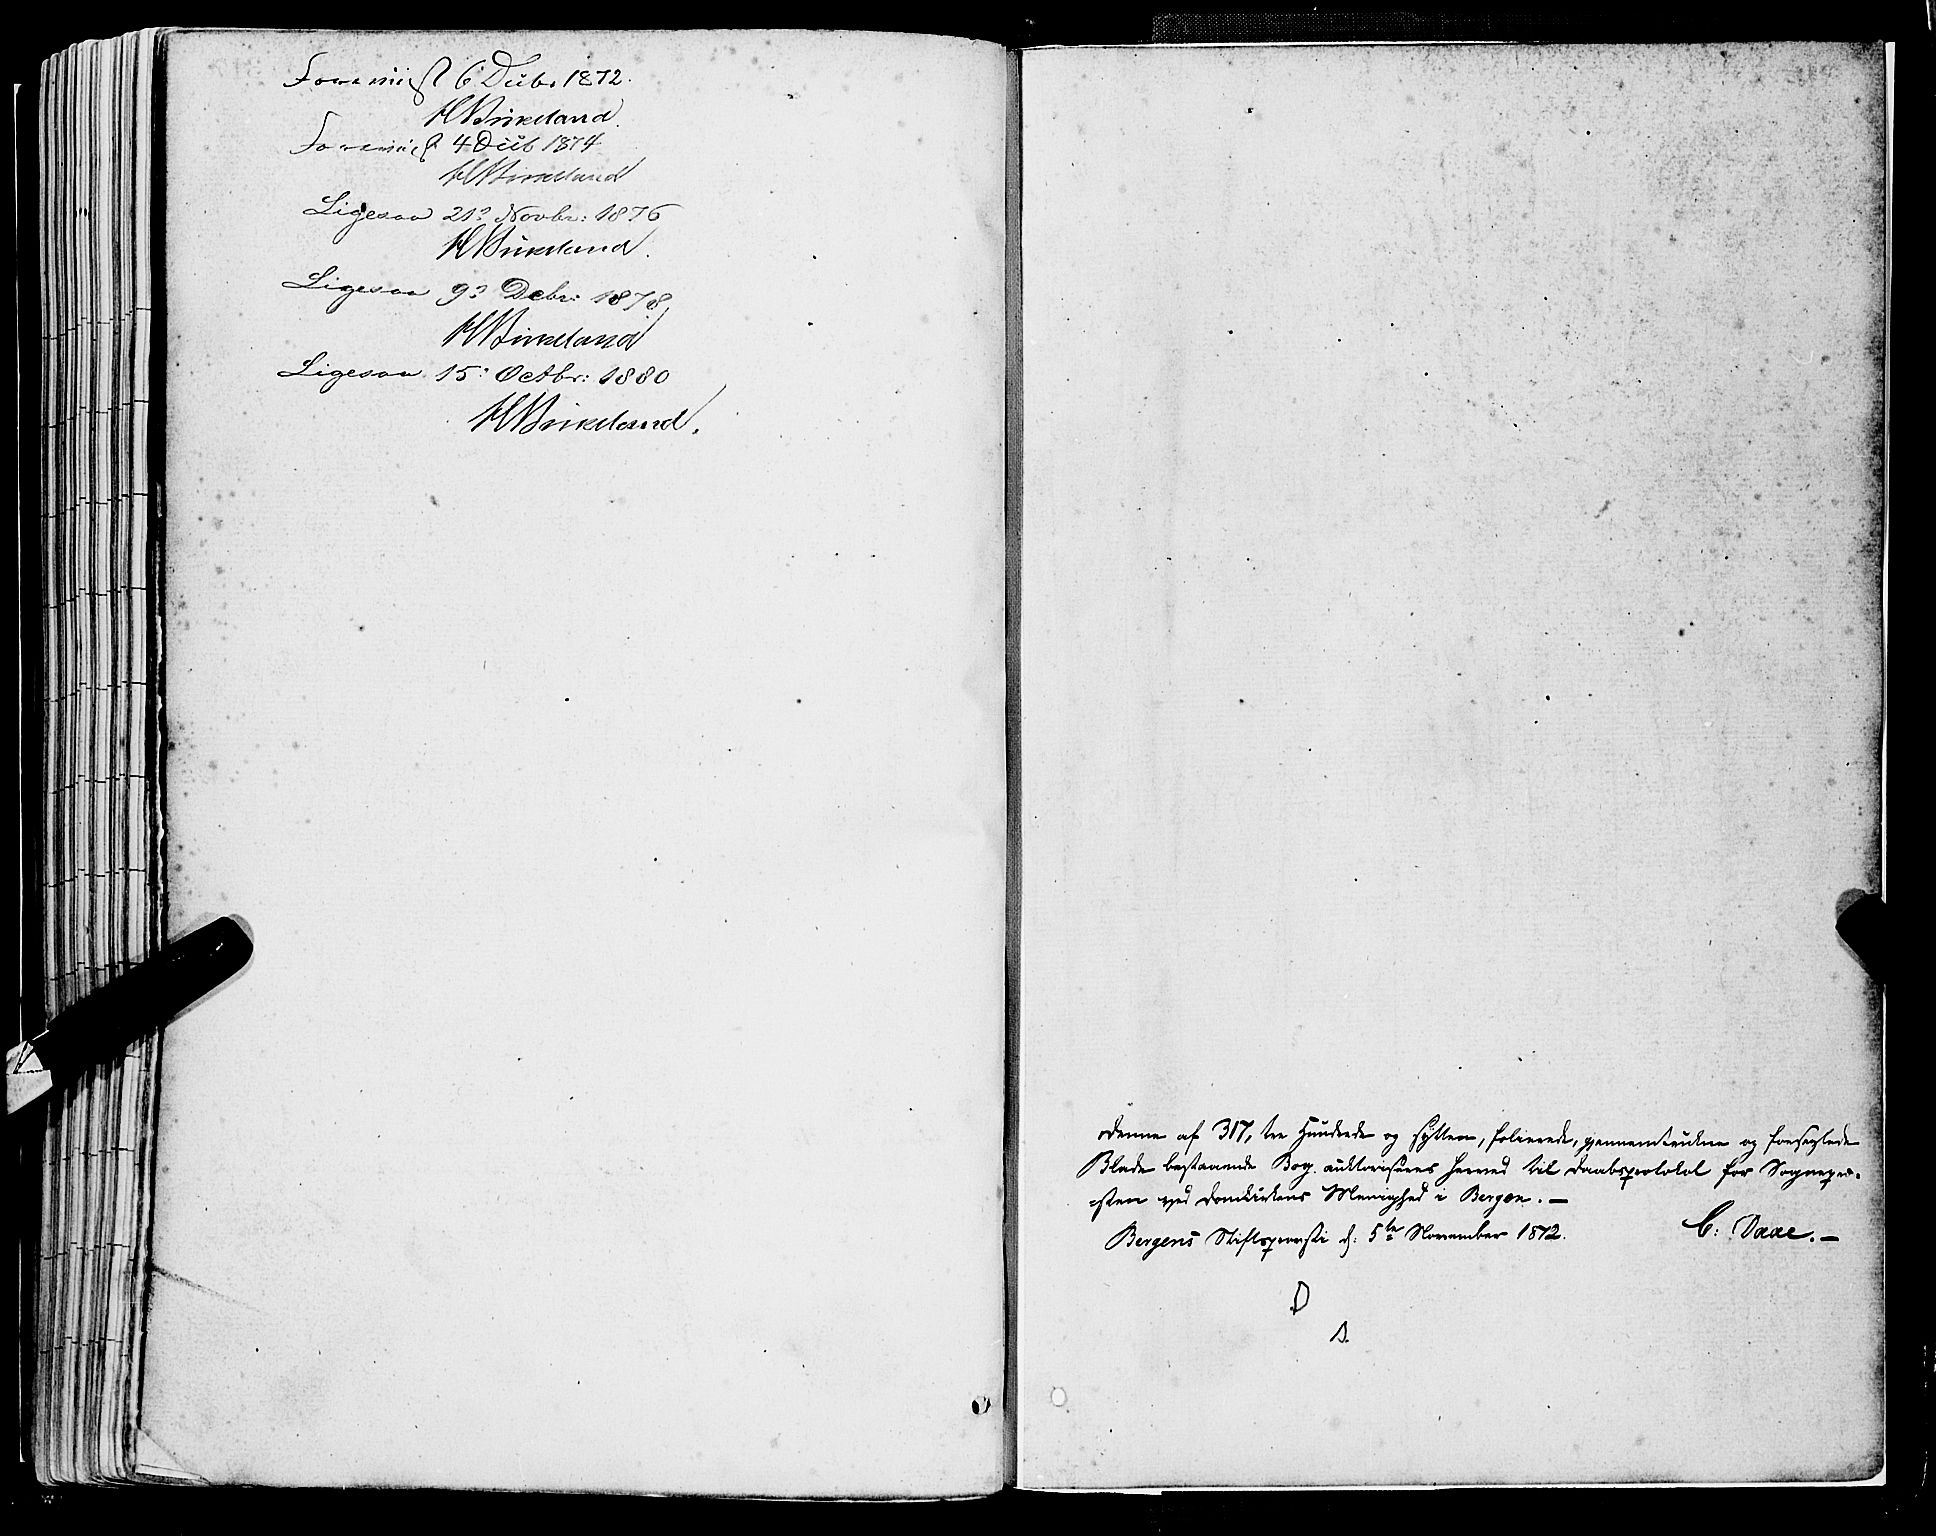 Forevist 6 Decb. 1872.
HBirkeland.
Forevist 4 Decb 1874
HBirkeland
Ligesaa 21de Novbr: 1876
HBirkeland.
Ligesaa 9de Debr: 1878
HBirkeland
Ligesaa 15: Octbr: 1880
HBirkeland.
Denne af 317, tre Hundrede og sytten, folierede, gjennemtrukne og forseglede
Blade bestaaende Bog auktoriseres herved til Daabsprotokol for Sognepræ-
sten ved Domkirkens Menighed i Bergen. –
Bergens Stiftsprovsti d: 5te November 1872.
C: Daae. –